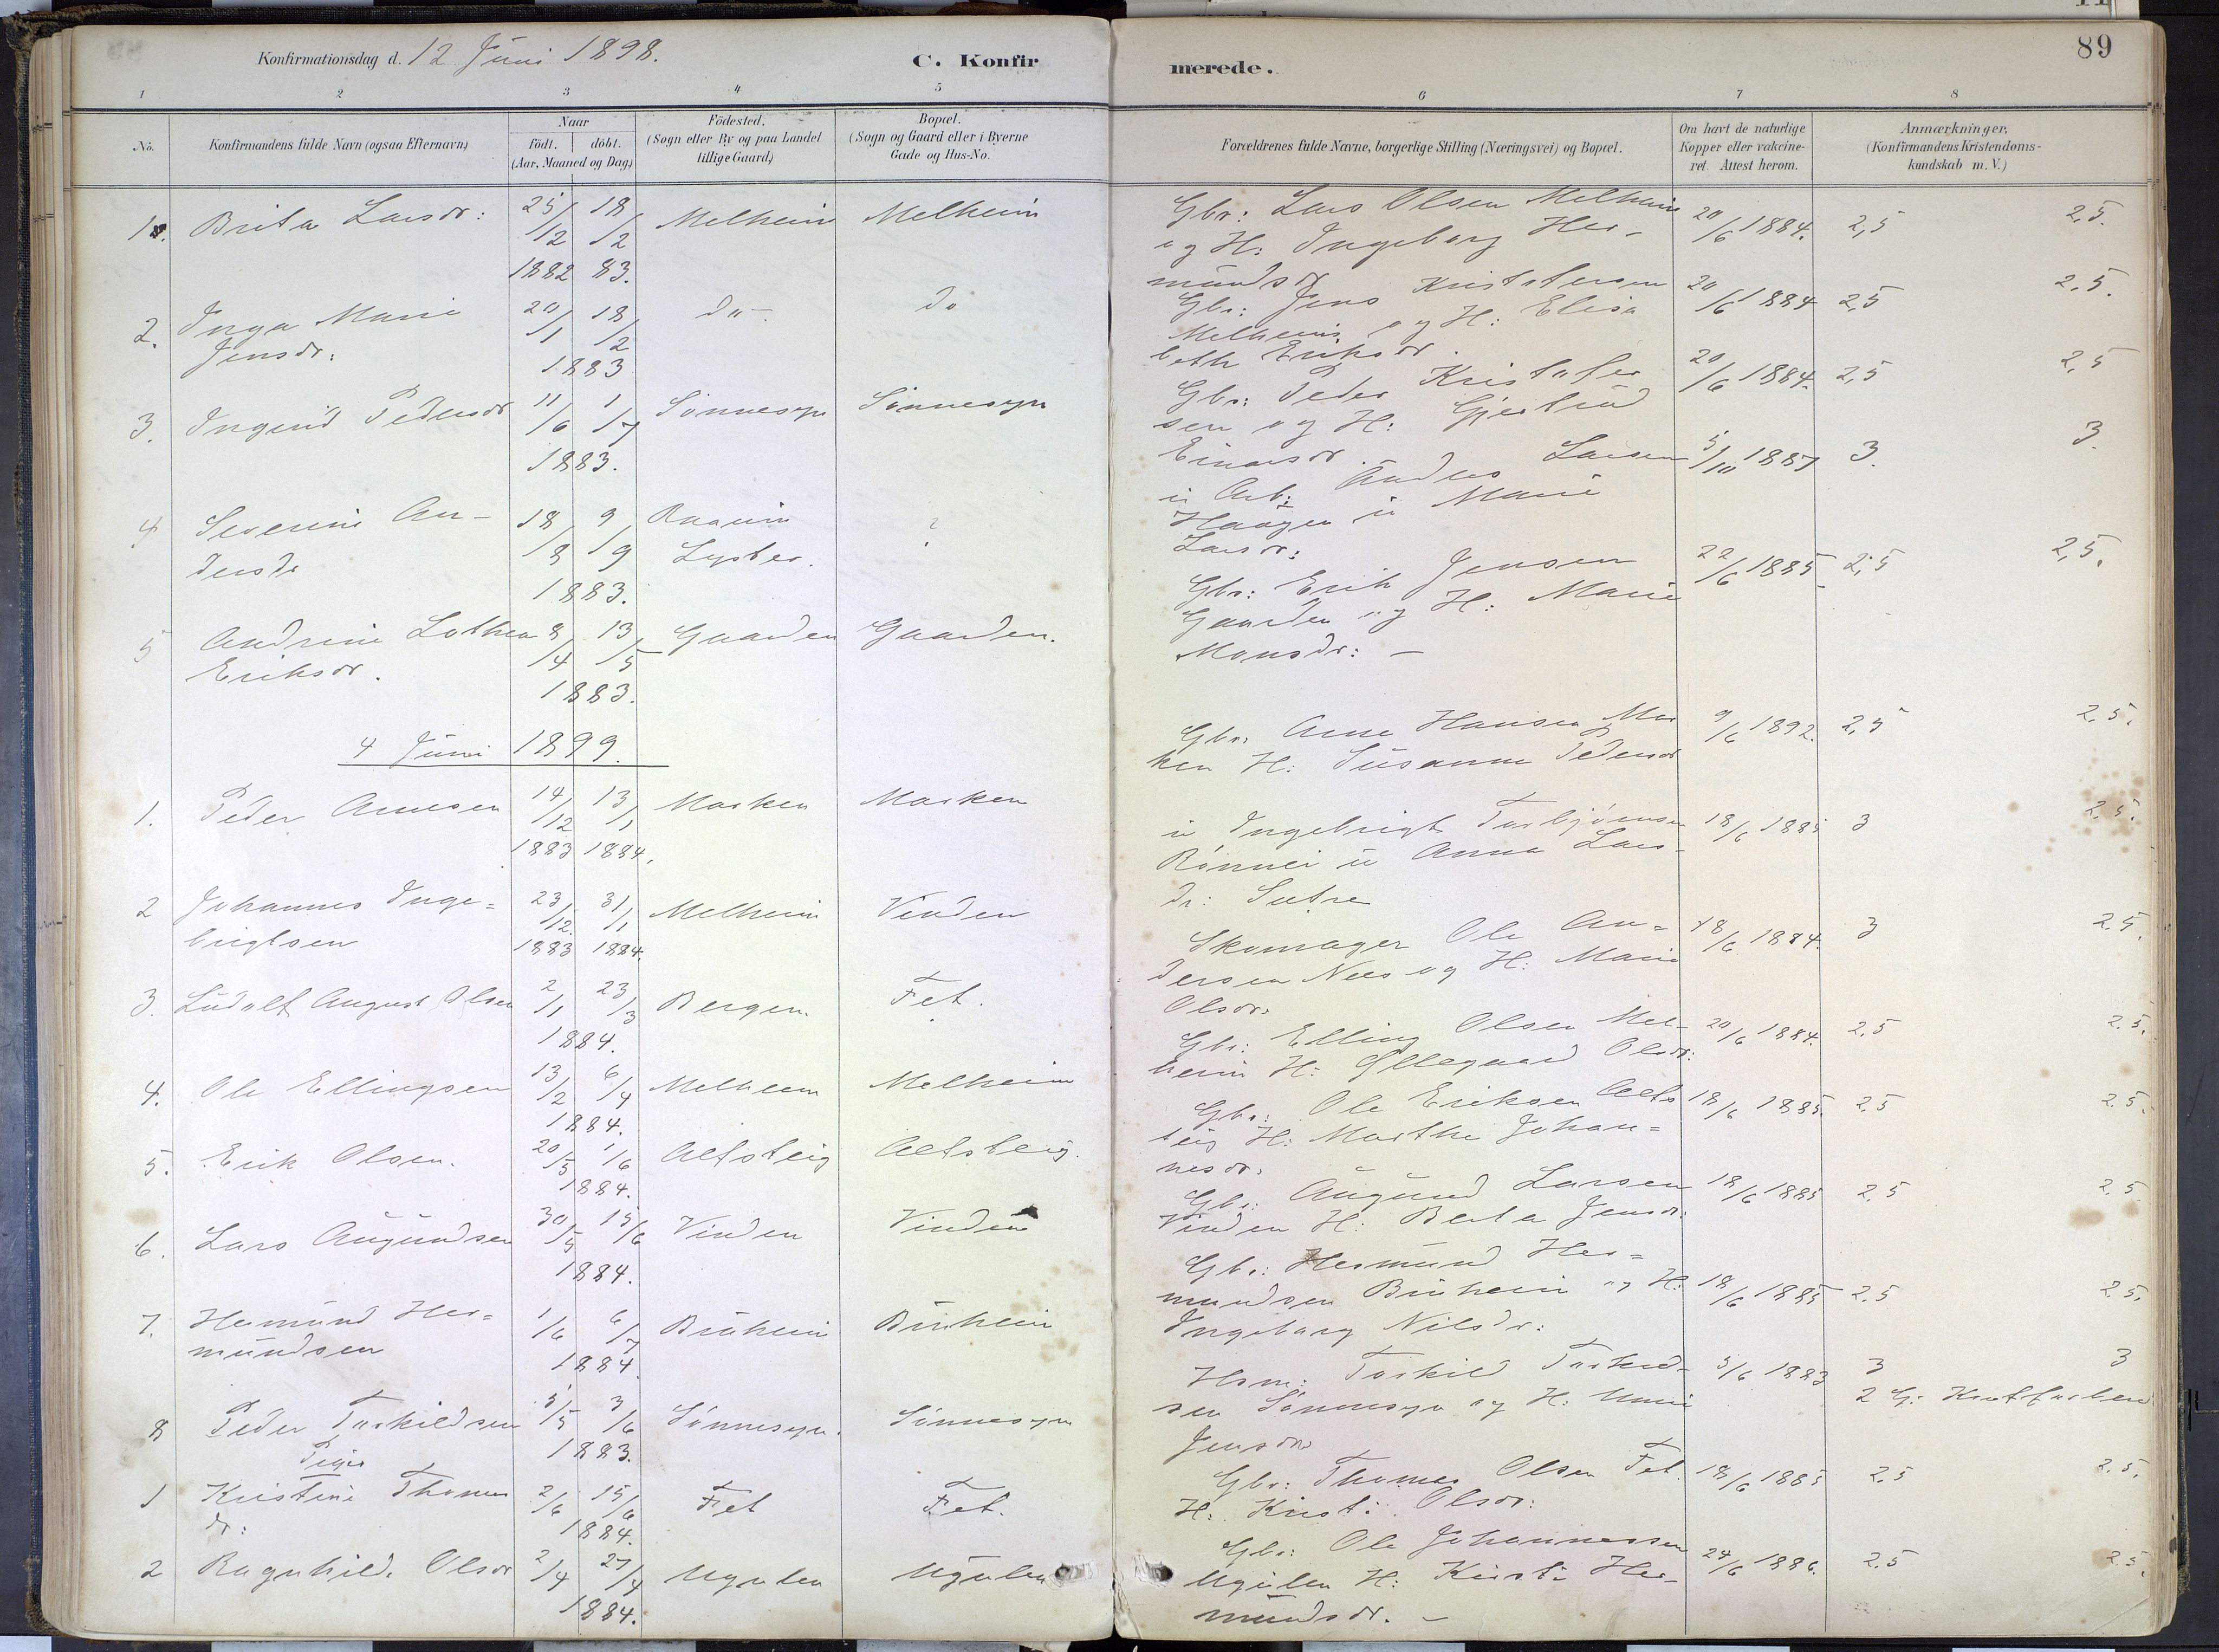 Konfirmationsdag d. 12 Juni 1898.
C. Konfirmerede.
89
1 2 3 4 5 6 7 8
No.
Konfirmandens fulde Navn (ogsaa Efternavn)
Naar
födt. döbt.
(Aar, Maaned og Dag)
Födested.
(Sogn eller By og paa Landet
tillige Gaard)
Bopæl.
(Sogn og Gaard eller i Byerne
Gade og Hus-No.
Forældrenes fulde Navne, borgerlige Stilling (Næringsvei) og Bopæl.
Om havt de naturlige
Kopper eller vakcine-
ret. Attest herom.
Anmærkninger,
(Konfirmandens Kristendoms-
kundskab m. V.)
1. Brita Larsdr: 25/12 1882 18/2 83. Melheim Melheim
Gbr: Lars Olsen Melheim
og H: Ingeborg Her-
mundsdr
20/6 1884. 2,5 2.5.
2. Inga Marie
Jensdr: 20/1 18/2 1883 do do
Gbr: Jens Kristofersen
Melheim og H: Elisa
beth Eriksdr.
20/6 1884 2,5 2.5.
3. Ingrid Pedersdr 11/6 1/7 1883. Sønnesyn Sønnesyn
Gbr: Peder Kristofer
sen og H: Gjertrud
Einarsdr.
20/6 1884. 2,5 2,5
4 Severine An-
dersdr 18/8 9/9 1883. Luster. ?
u Arb: Anders Larsen
Haugen u Marie
Larsdr:
5/10 1887 3. 3.
5 Andrine Lothea
Eriksdr. 8/4 13/5 1883. Gaarden Gaarden.
Gbr: Erik Jensen
Gaarden og H: Marie
Monsdr: -
22/6 1885 2,5 2,5.
4 Juni 1899.
1. Peder Arnesen 14/12 1883 13/1 1884. Morken Morken
Gbr: Arne Hansen Mor
ken H: Susanne Pedersdr
9/6 1892. 2,5 2.5.
2 Johannes Inge=
brigtsen 23/12 1883 31/1 1884. Melheim Vinden
u Ingebrigt Torbjørnsen
Rønnei u Anna Lars-
dr: Sutre
18/6 1885 3 2.5.
3. Ludolf August Olsen 2/1 23/3 1884. Bergen. Fet.
Skomager Ole An=
dersen Nes og H: Marie
Olsdr:
18/6 1884. 3 2.5.
4. Ole Ellingsen 13/2 6/4 1884. Melheim Melheim
Gbr: Elling Olsen Mel-
heim H: Øllegaard Olsdr:
20/6 1884. 2.5 2.5.
5. Erik Olsen. 20/5 1/6 1884. Aefsteig Aefsteig.
Gbr: Ole Eriksen Aefs
teig H: Marthe Johan=
nesdr:
18/6 1885. 2.5 2.5.
6. Lars Augundsen 30/5 15/6 1884. Vinden Vinden
Gbr: Augund Larsen
Vinden H: Berta Jensdr:
18/6 1885 2.5 2.5
7. Hermund Her=
mundsen 1/6 6/7 1884. Buheim Buheim
Gbr: Hermund Her=
mundsen Buheim og H:
Ingeborg Nilsdr:
18/6 1885 2.5 2.5.
8 Peder Torkildsen 5/5 3/6 1883. Sønnesyn. Sønnesyn
Hsm: Torkild Torkild-
sen Sønnesyn og H: Unni
Jensdr
5/6 1883 3 3
Piger
1 Kristine Thomas
dr: 2/6 15/6 1884. Fet Fet.
Gbr: Thomas Olsen Fet.
H: Kirsti Olsdr:
18/6 1885 2.5 2.5.
2 Ragnhild Olsdr 2/4 27/4 1884. Ugulen Ugulen
Gbr: Ole Johannessen
Ugulen H: Kirsti Her-
mundsdr. -
24/6 1886. 2.5 2.5.